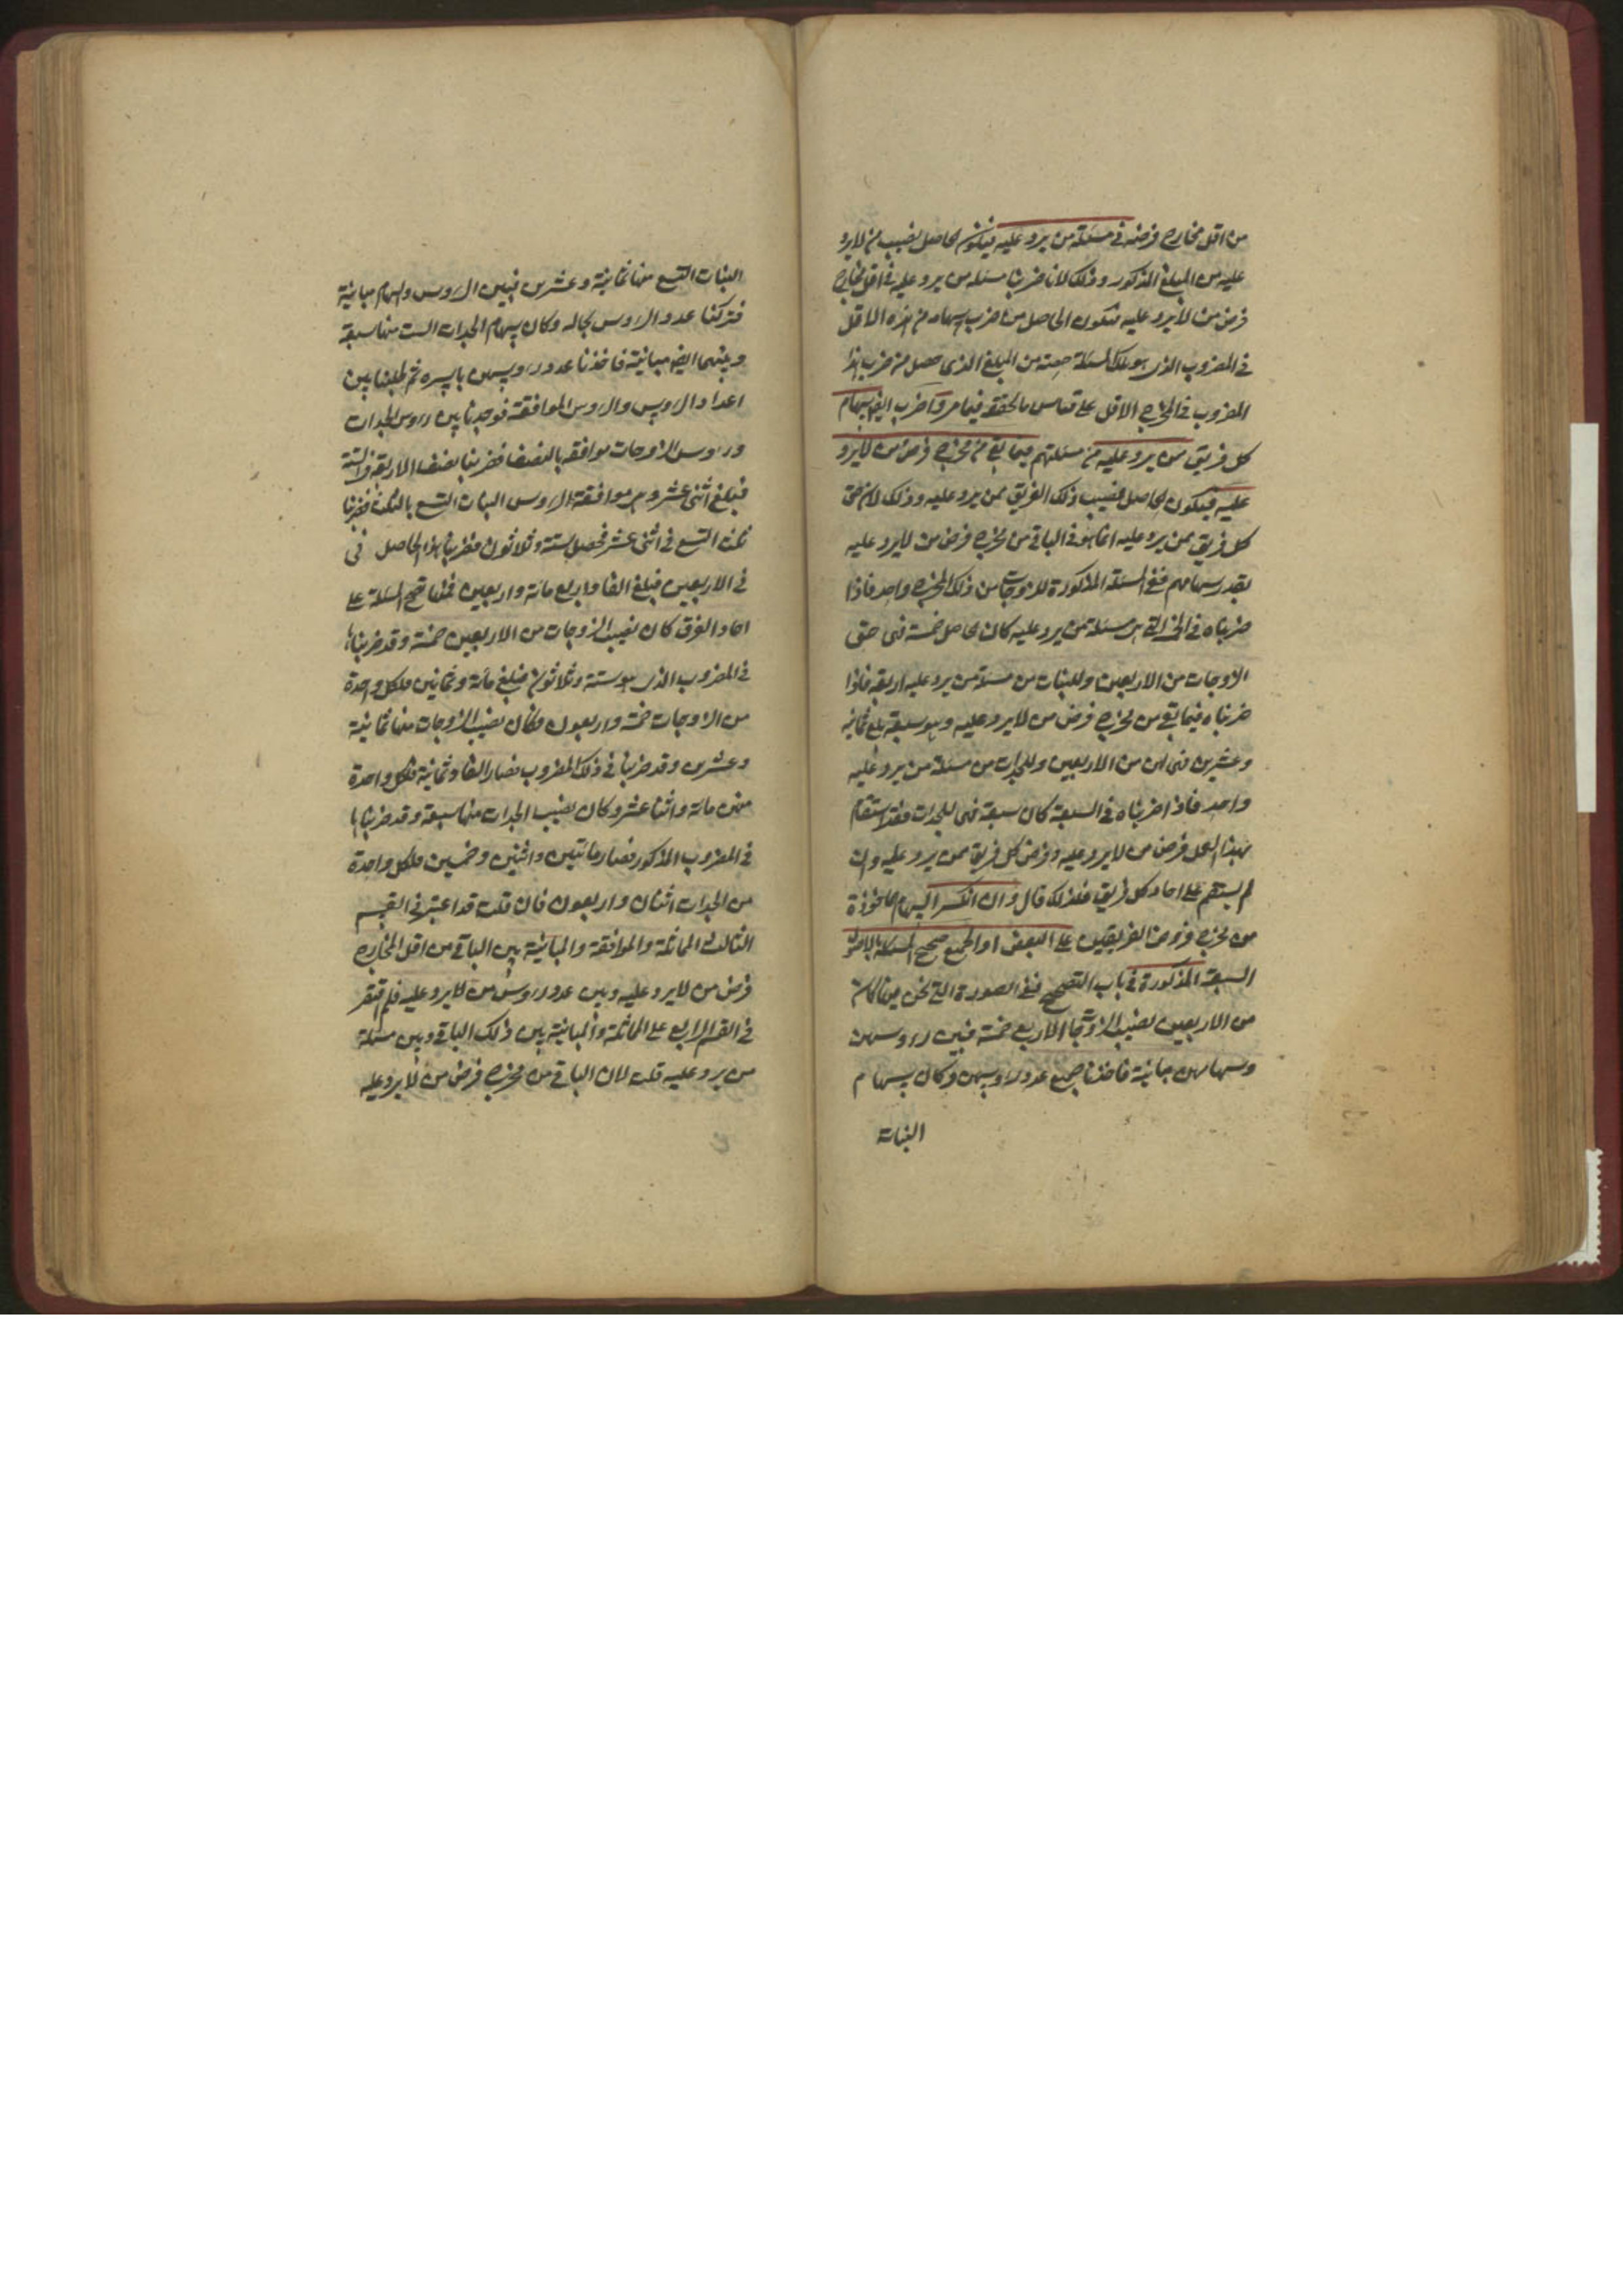 من اقل مخارج فرضه في مسئلة من يرد عليه فيكون الحاصل نصيب من لا يرد
عليه من المبلغ المذكور وذلك لانا ضربنا مسئلة من يرد عليه في اقل مخارج
فرض من لا يرد عليه فيكون الحاصل من ضرب سهامه من هذه الاقل
في المضروب الذي هو تلك المسئلة حصته من المبلغ الذي حصل من ضرب هذا
المضروب في المخرج الاقل على قياس ما تحققته فيما مر واضرب ايضا سهام
كل فريق من يرد عليه من مسئلتهم فيما بقي من مخرج فرض من لا يرد
عليه فيكون الحاصل نصيب ذلك الفريق ممن يرد عليه وذلك لان حق
كل فريق ممن يرد عليه انما هو في الباقي من مخرج فرض من لا يرد عليه
بقدر سهامهم ففي المسئلة المذكورة للزوجات من ذلك المخرج واحد فاذا
ضربناه في الخمسة التي هي مسئلة من يرد عليه كان الحاصل خمسة فهي حق
الزوجات من الاربعين وللبنات من مسئلة من يرد عليه اربعة فاذا
ضربناه فيما بقي من مخرج فرض من لا يرد عليه وهو سبعة بلغ ثمانية
وعشرين فهي لهن من الاربعين وللجدات من مسئلة من يرد عليه
واحد فاذا ضربناه في السبعة كان سبعة فهي للجدات فقد استقام
بهذا العمل فرض من لا يرد عليه وفرض كل فريق ممن يرد عليه وان
لم يستقم على احاد كل فريق فلذلك قال وان انكسر السهام الماخوذة
من مخرج فروض الفريقين على البعض او الجميع صحح المسئلة بالاصول
السبعة المذكورة في باب التصحيح ففي الصورة التي نحن فيها كان
من الاربعين نصيب الزوجات الاربع خمسة فبين رءوسهن
وسهامهن مباينة فاخذنا جميع عدد رءوسهن وكان سهام
البنات
البنات التسع منها ثمانية وعشرين فبين الرءوس والسهام مباينة
فتركنا عدد الرءوس بحاله وكان سهام الجدات الست منها سبعة
وبينهما ايضا مباينة فاخذنا عدد رءوسهن باسره ثم طلبنا بين
اعداد الرءوس والرءوس الموافقة فوجدنا بين رءوس الجدات
ورءوس الزوجات موافقة بالنصف فضربنا نصف الاربعة في الستة
فبلغ اثنى عشر وهو موافقة لرءوس البنات التسع بالثلث فضربنا
ثلث التسع في اثنى عشر فحصل ستة وثلاثون فضربنا هذا الحاصل في
في الاربعين فبلغ الفا واربع مائة واربعين فمنها تصح المسئلة على
احاد الفرق كان نصيب الزوجات من الاربعين خمسة وقد ضربناها
في المضروب الذي هو ستة وثلاثون فبلغ مائة وثمانين فلكل واحدة
من الزوجات خمسة واربعون وكان نصيب الزوجات منها ثمانية
وعشرين وقد ضربنا في ذلك المضروب فصار الفا وثمانية فلكل واحدة
منهن مائة واثنا عشر وكان نصيب الجدات منها سبعة وقد ضربناها
في المضروب المذكور فصار مائتين واثنين وخمسين فلكل واحدة
من الجدات اثنان واربعون فان قلت قد اعتبر في القسم
الثالث المماثلة والموافقة والمباينة بين الباقي من اقل المخارج
فرض من لا يرد عليه وبين عدد رءوس من لا يرد عليه فلم اقتصر
في القسم الرابع على المماثلة والمباينة بين ذلك الباقي وبين مسئلة
من يرد عليه قلت لان الباقي من مخرج فرض من لا يرد عليه